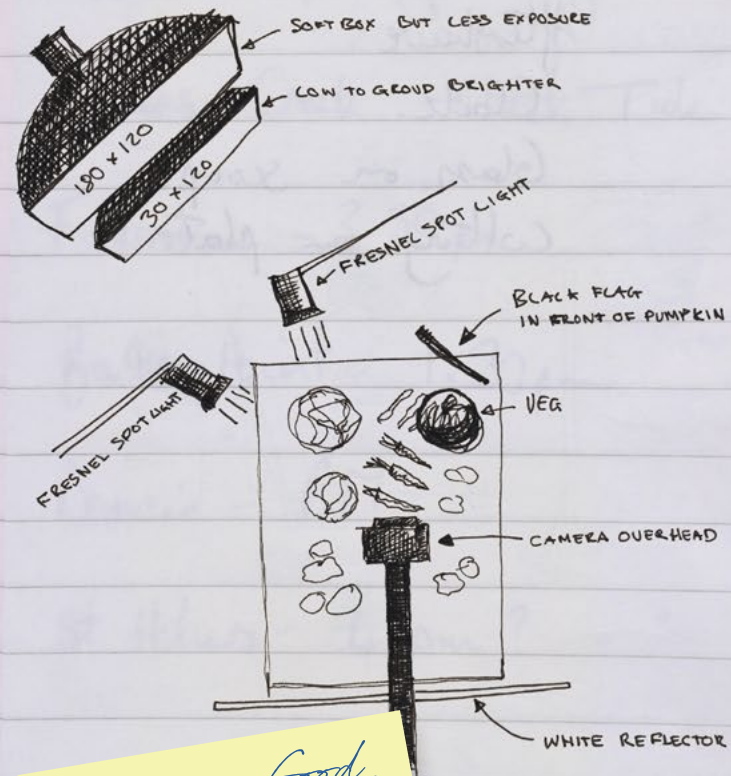 SOFT BOX BUT LESS EXPOSURE
LOW TO GROUD BRIGHTER
180 x 120
30 x 120
FRESNEL SPOT LIGHT
BLACK FLAG
IN FRONT OF PUMPKIN
VEG
FRESNEL SPOT LIGHT
CAMERA OVERHEAD
WHITE REFLECTOR
Good